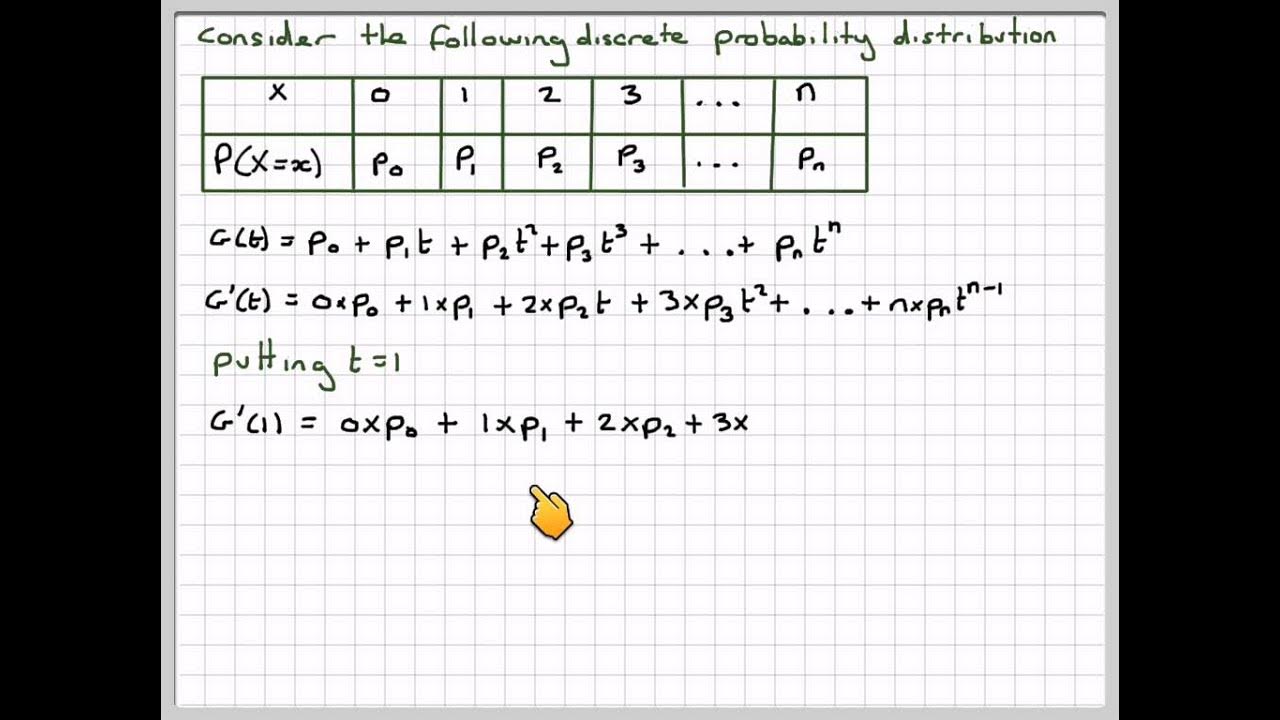 Consider the following discrete probability distribution
x 0 1 2 3 ... n
P(X=x) p₀ p₁ p₂ p₃ ... pₙ
G(t) = p₀ + p₁t + p₂t² + p₃t³ + ... + pₙtⁿ
G'(t) = 0×p₀ + 1×p₁ + 2×p₂t + 3×p₃t² + ... + n×pₙtⁿ⁻¹
putting t=1
G'(1) = 0×p₀ + 1×p₁ + 2×p₂ + 3×